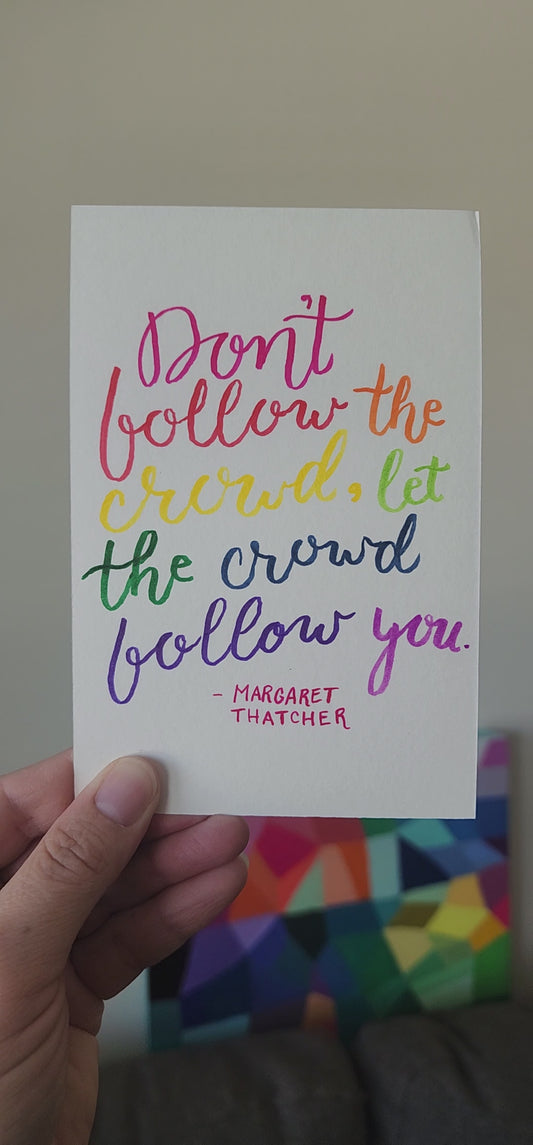 Don't
follow the
crowd, let
the crowd
follow you.
- MARGARET
THATCHER